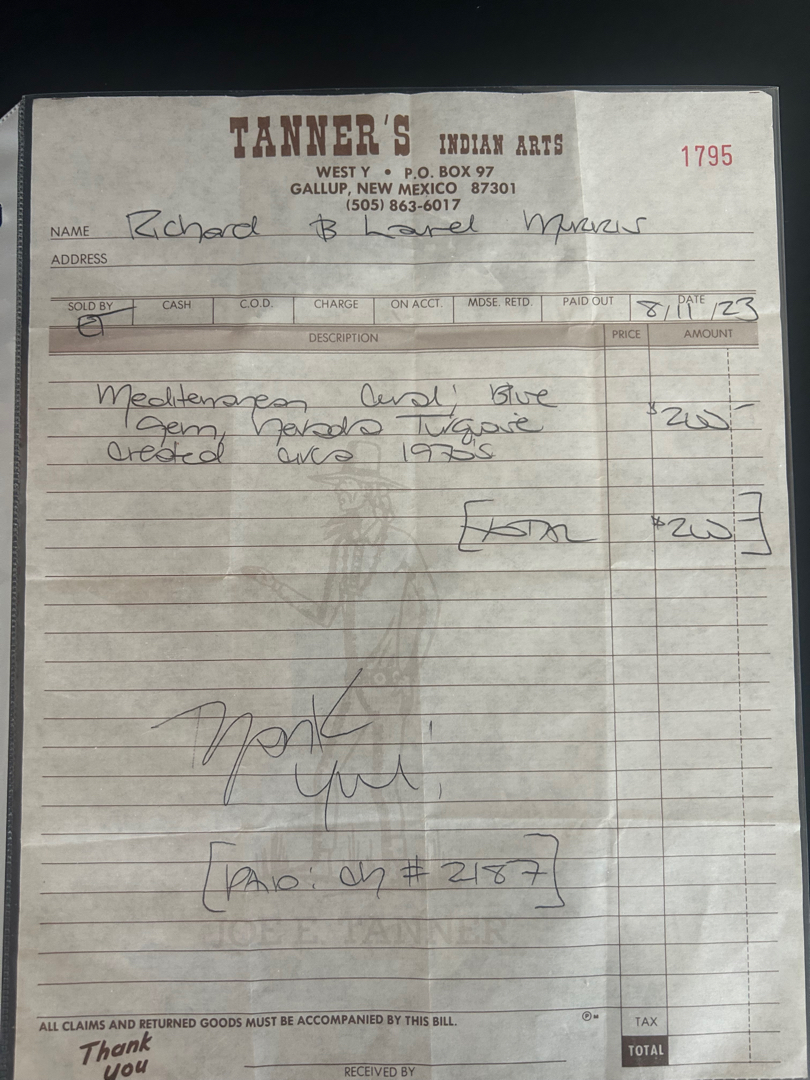 TANNER'S INDIAN ARTS
1795
WEST Y • P.O. BOX 97
GALLUP, NEW MEXICO 87301
(505) 863-6017
NAME Richard & Laurel Morris
ADDRESS
SOLD BY CASH C.O.D. CHARGE ON ACCT. MDSE. RETD. PAID OUT DATE
ET 8/11/23
DESCRIPTION PRICE AMOUNT
Mediterranean Coral; Blue
gem, Nevada Turquoise $200-
created circa 1970s
[TOTAL $200-]
Thank
you!
[PAID: ch # 2187]
JOE E. TANNER
ALL CLAIMS AND RETURNED GOODS MUST BE ACCOMPANIED BY THIS BILL.
TAX
Thank
you
TOTAL
RECEIVED BY